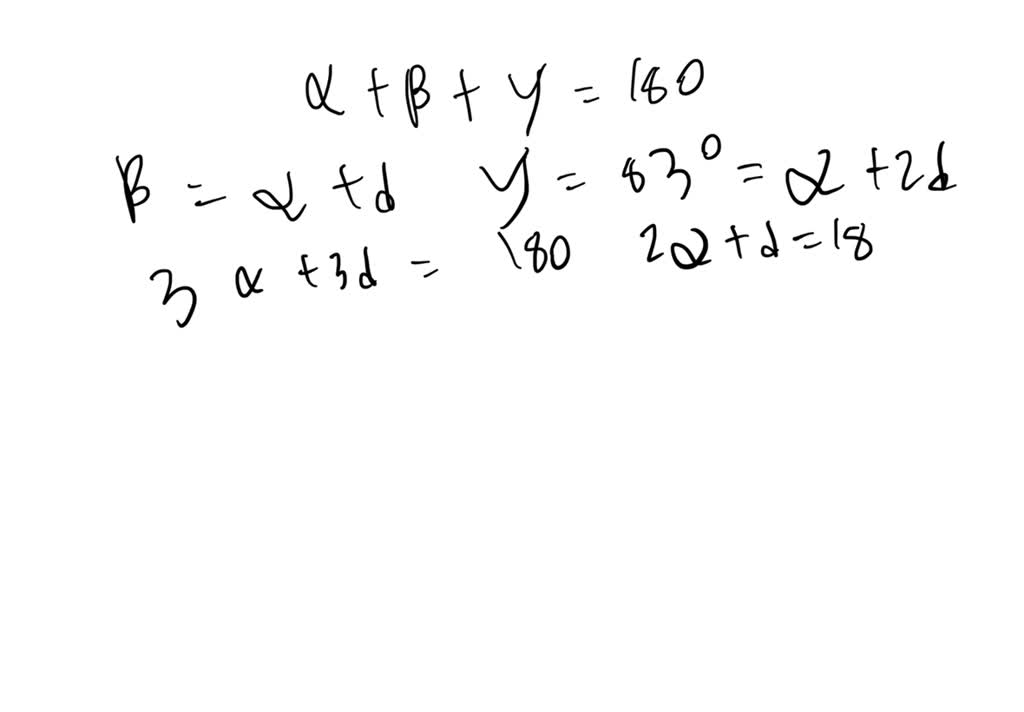 α + β + γ = 180
β = α + d γ = 83° = α + 2d
3 α + 3d = 180 2α + d = 18